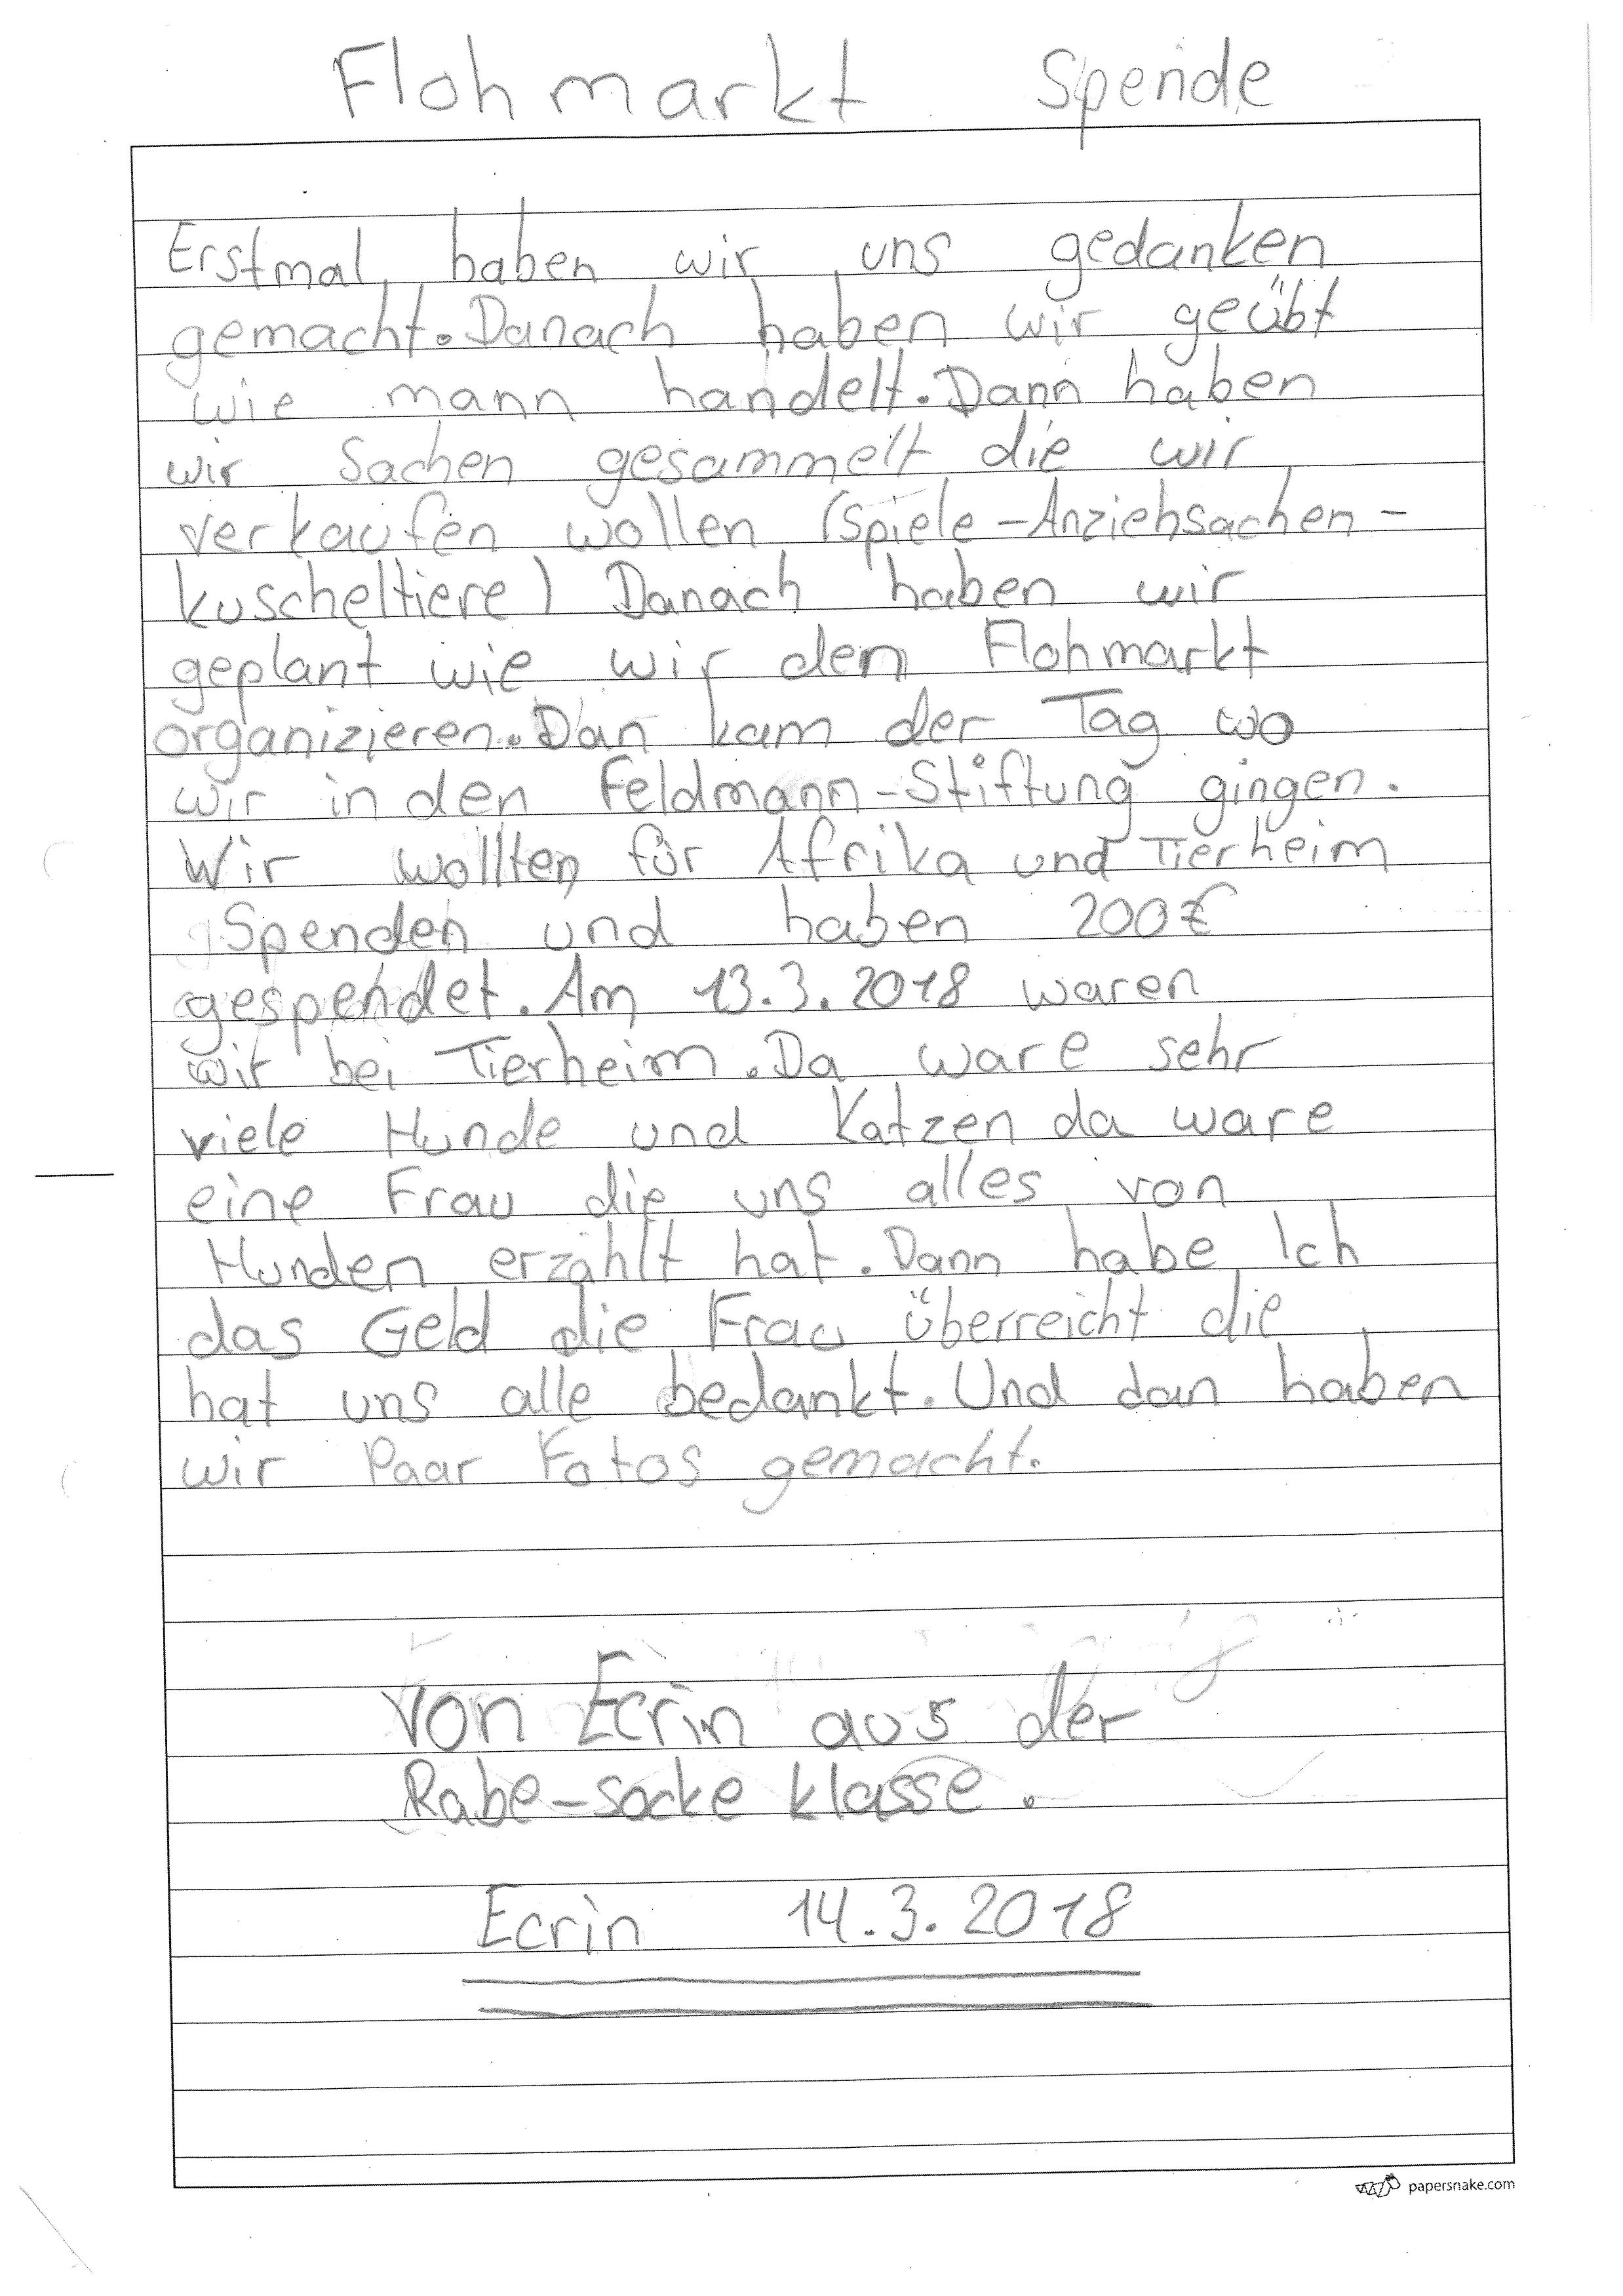 Flohmarkt Spende
Erstmal haben wir uns gedanken
gemacht. Danach haben wir geübt
wie mann handelt. Dann haben
wir Sachen gesammelt die wir
verkaufen wollen (Spiele - Anziehsachen -
kuscheltiere) Danach haben wir
geplant wie wir den Flohmarkt
organizieren. Dan kam der Tag wo
wir in den Feldmann-Stiftung gingen.
Wir wollten für Afrika und Tierheim
Spenden und haben 200€
gespendet. Am 13.3.2018 waren
wir bei Tierheim. Da ware sehr
viele Hunde und Katzen da ware
eine Frau die uns alles von
Hunden erzählt hat. Dann habe Ich
das Geld die Frau überreicht die
hat uns alle bedankt. Und dan haben
wir Paar Fotos gemacht.
von Ecrin aus der
Rabe-socke klasse.
Ecrin 14.3.2018
papersnake.com